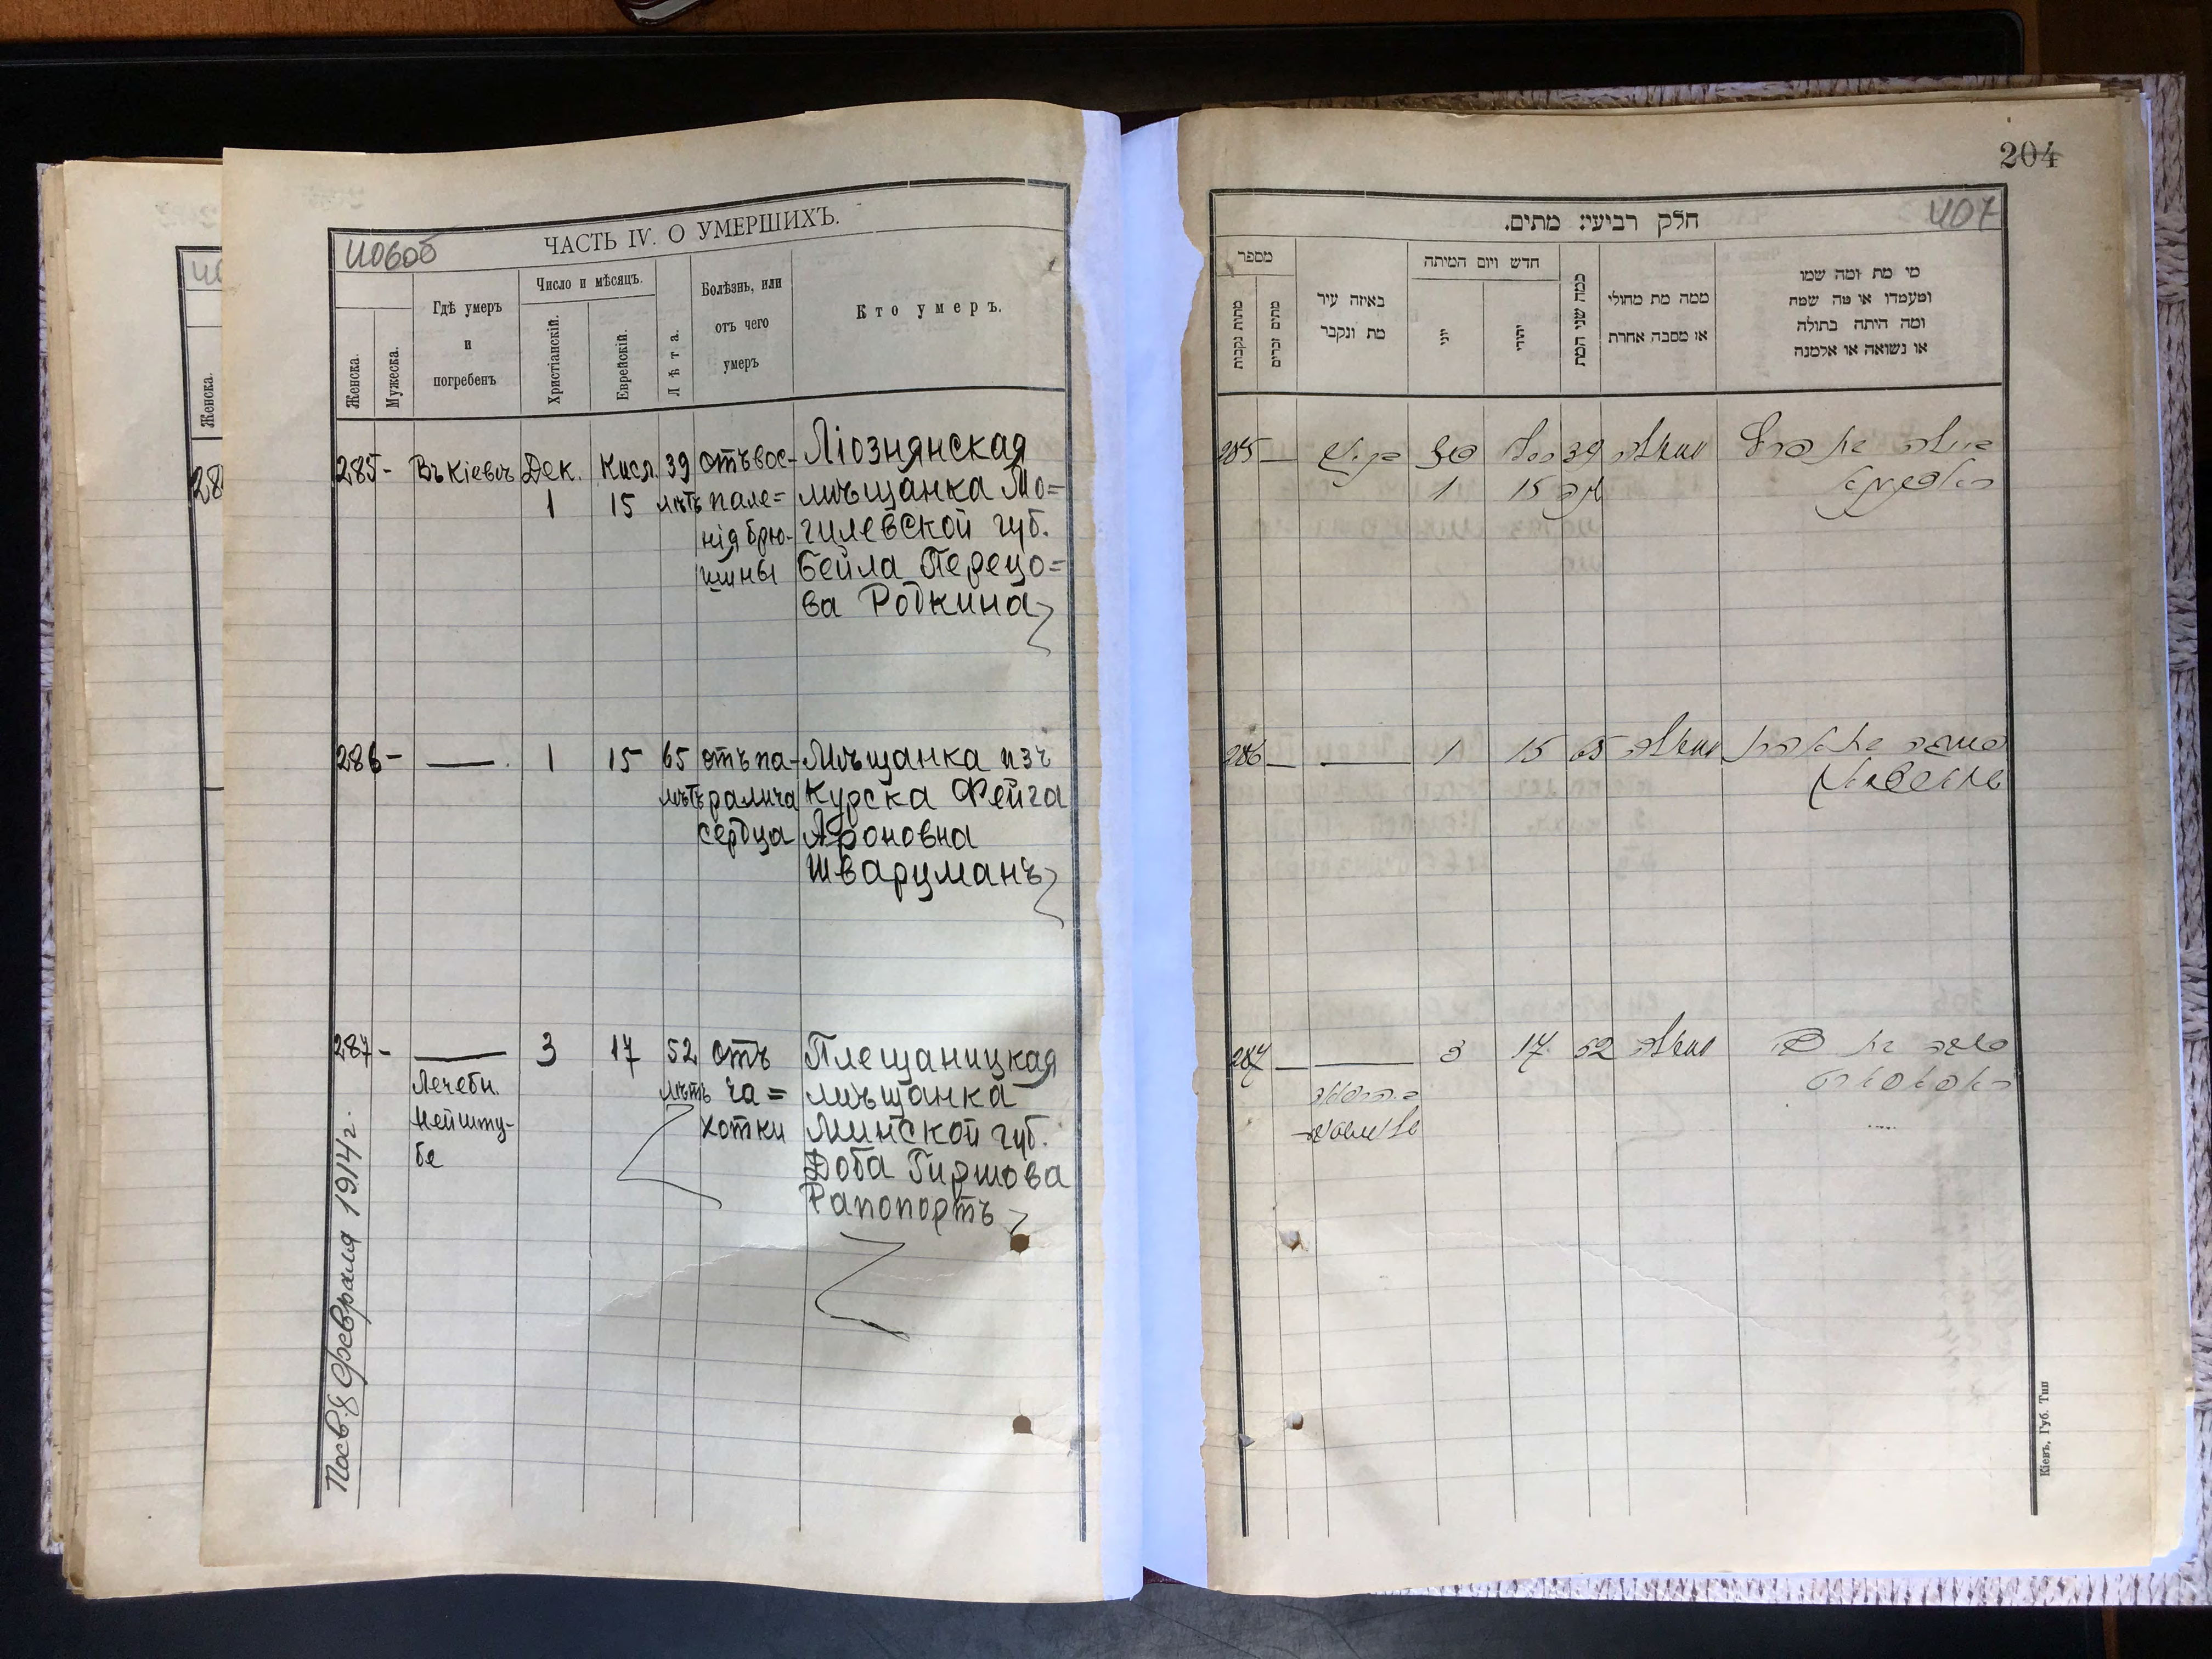 406об
ЧАСТЬ IV. О УМЕРШИХЪ.
Женска.
Мужеска.
Гдѣ умеръ
и
погребенъ
Число и мѣсяцъ.
Христіанскій.
Еврейскій.
Лѣта.
Болѣзнь, или
отъ чего
умеръ
Кто умеръ.
285 - Въ Кіевѣ Дек. Кисл. 39 отъ вос- Ліознянская
1 15 лѣтъ пале= мѣщанка Мо=
нія брю- гилевской губ.
шины Бейла Перецо=
ва Родкина
286 - — 1 15 65 отъ па- Мѣщанка изъ
лѣтъ ралича Курска Фейга
сердца Ароновна
Шварцманъ
287 - — 3 17 52 отъ Плещаницкая
Лечебн. лѣтъ ча= мѣщанка
Нейшту- хотки Минской губ.
бе Доба Гиршова
Рапопортъ
Посв. 8 Февраля 1914 г.
Женска.
28
204
407
חלק רביעי: מתים.
מספר
מתות נקבות
מתים זכרים
באיזה עיר
מת ונקבר
חדש ויום המיתה
יוני
יהודי
כמה שני המת
ממה מת מחולי
או מסבה אחרת
מי מת ומה שמו
ומעמדו או מה שמה
ומה היתה בתולה
או נשואה או אלמנה
285 — 39
1 15
286 — — 1 15 65
287 — — 3 17 52
Кіевъ, Губ. Тип